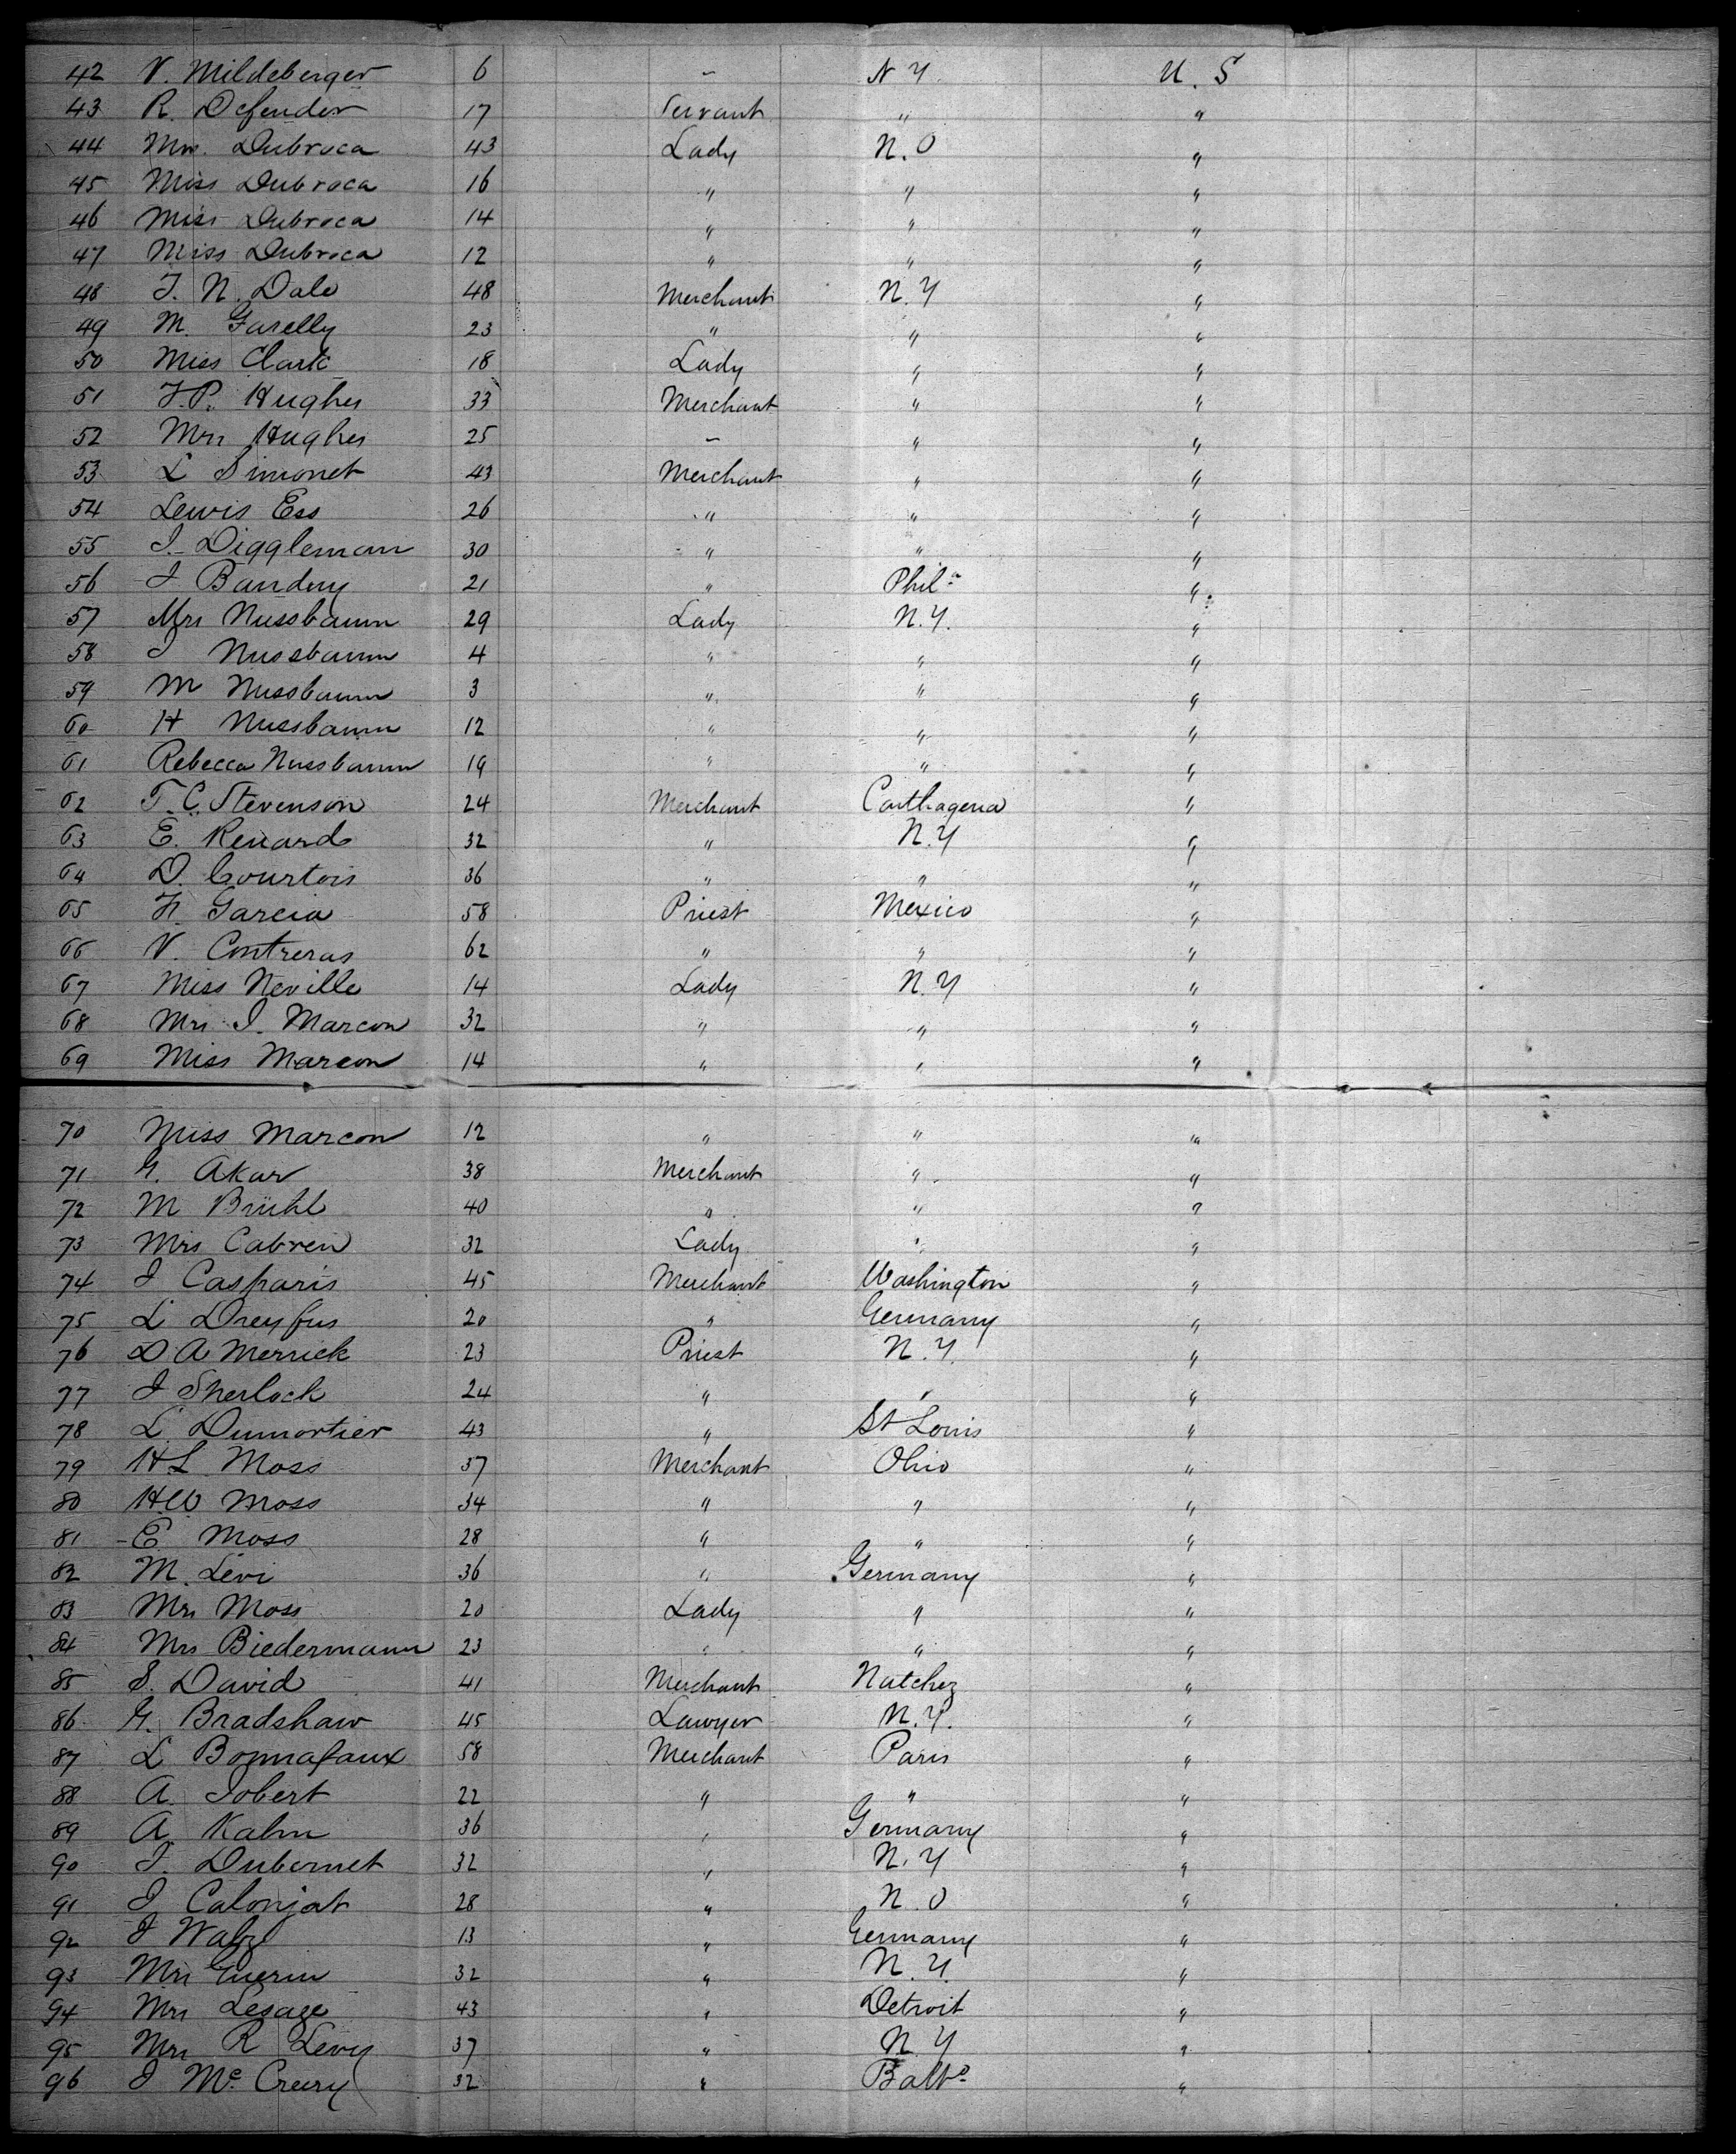 42 V. Mildeberger 6 – N Y. U. S
43 R. Defender 17 Servant " "
44 Mrs. Dubroca 43 Lady N. O "
45 Miss Dubroca 16 " " "
46 Miss Dubroca 14 " " "
47 Miss Dubroca 12 " " "
48 T. N. Dale 48 Merchant N. Y "
49 M. Garelly 23 " " "
50 Miss Clark 18 Lady " "
51 F. P. Hughes 33 Merchant " "
52 Mrs Hughes 25 – " "
53 L Simonet 43 Merchant " "
54 Lewis Ess 26 " " "
55 J. Diggleman 30 " " "
56 J Bandery 21 " Phila "
57 Mrs Nussbaum 29 Lady N. Y. "
58 J Nussbaum 4 " " "
59 M Nussbaum 3 " " "
60 H Nussbaum 12 " " "
61 Rebecca Nussbaum 19 " " "
62 T. C. Stevenson 24 Merchant Carthagena "
63 E. Renard 32 " N. Y "
64 D. Courtois 36 " " "
65 F. Garcia 58 Priest Mexico "
66 V. Contreras 62 " " "
67 Miss Neville 14 Lady N. Y "
68 Mrs J. Marcon 32 " " "
69 Miss Marcon 14 " " "
70 Miss Marcon 12 " " "
71 G. Akar 38 Merchant " "
72 M Brühl 40 " " "
73 Mrs Cabren 32 Lady " "
74 J Casparis 45 Merchant Washington "
75 L Dreyfus 20 " Germany "
76 D A Merrick 23 Priest N. Y. "
77 J Sherlock 24 " " "
78 L. Dumortier 43 " St Louis "
79 H L Moss 37 Merchant Ohio "
80 H. W Moss 34 " " "
81 E Moss 28 " " "
82 M. Levi 36 " Germany "
83 Mrs Moss 20 Lady " "
84 Mrs Biedermann 23 " " "
85 S. David 41 Merchant Natchez "
86 G. Bradshaw 45 Lawyer N. Y. "
87 L Bonnafaux 58 Merchant Paris "
88 A. Jobert 22 " " "
89 A Kahn 36 " Germany "
90 J. Dubernet 32 " N. Y "
91 J Calonjat 28 " N. O "
92 J Walz 13 " Germany "
93 Mrs Guerin 32 " N. Y. "
94 Mrs Lesage 43 " Detroit "
95 Mrs R Levy 37 " N. Y "
96 J Mc Creery 32 " Balto "